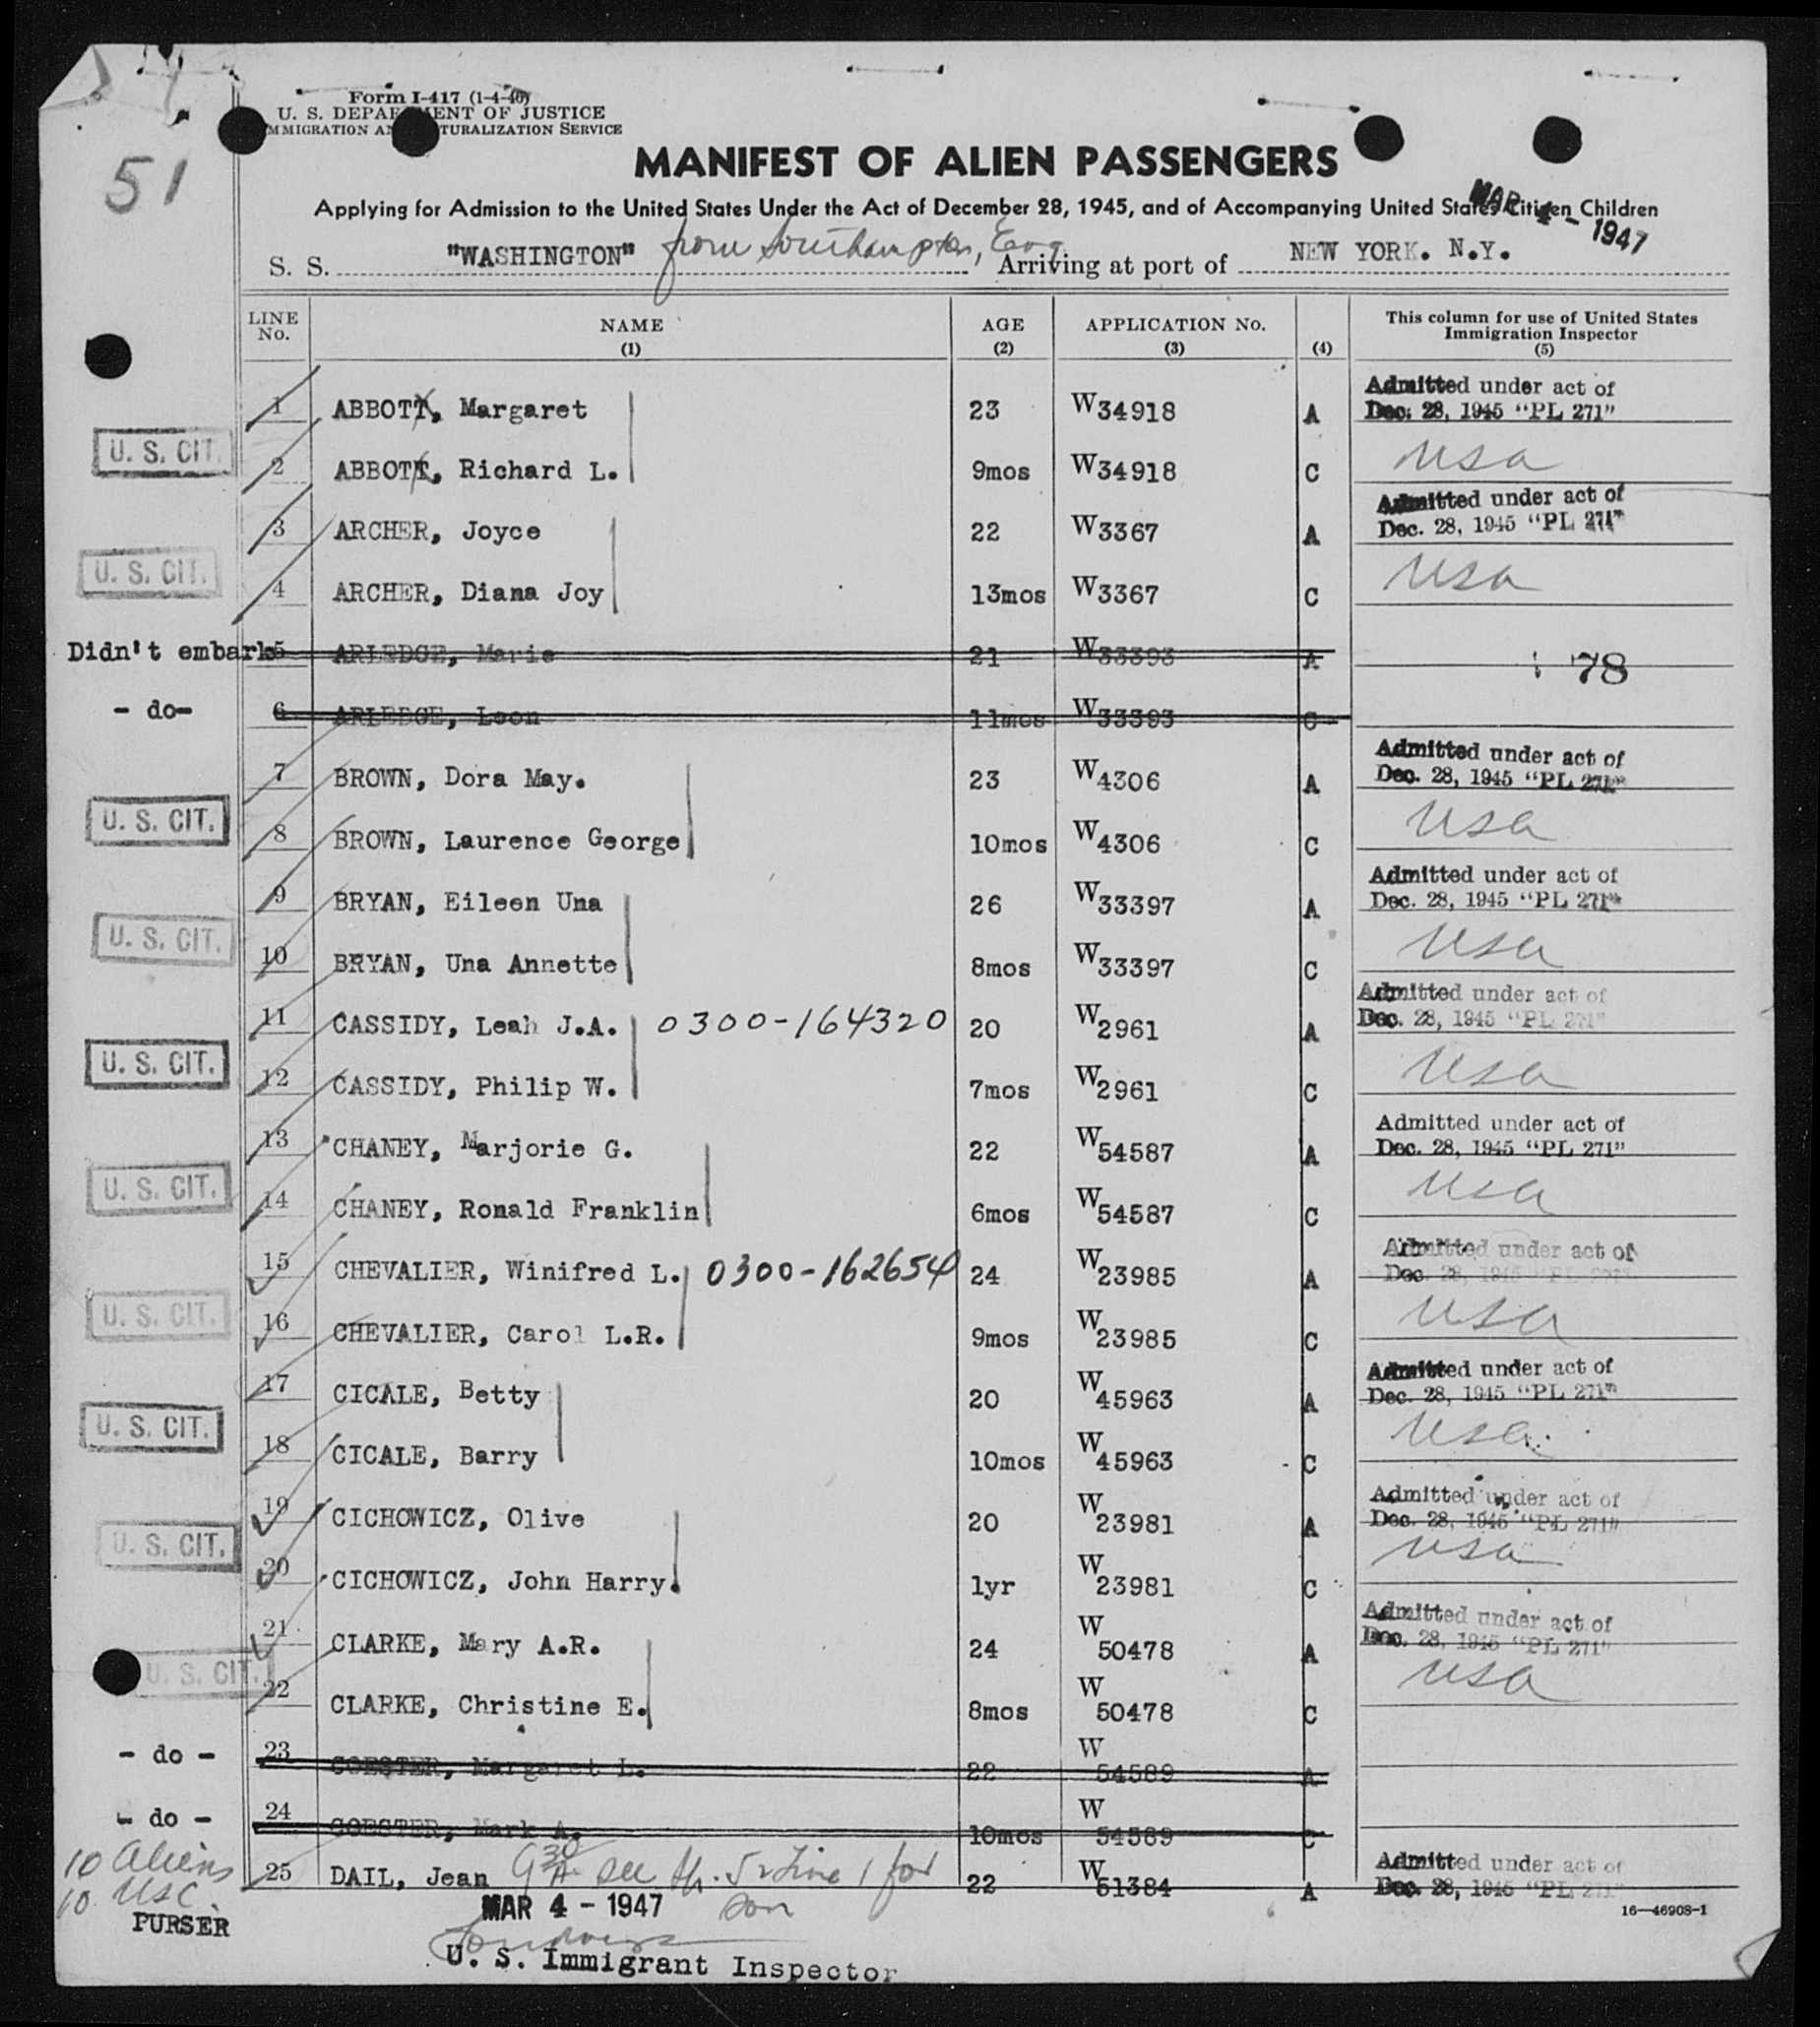 Form I-417 (1-4-46)
U. S. DEPARTMENT OF JUSTICE
IMMIGRATION AND NATURALIZATION SERVICE
51
MANIFEST OF ALIEN PASSENGERS
Applying for Admission to the United States Under the Act of December 28, 1945, and of Accompanying United States Citizen Children
MAR 4 - 1947
S. S. "WASHINGTON" from Southampton, Eng Arriving at port of NEW YORK. N.Y.
LINE No. NAME (1) AGE (2) APPLICATION No. (3) (4) This column for use of United States Immigration Inspector (5)
1 ABBOTT, Margaret 23 W34918 A Admitted under act of Dec. 28, 1945 "PL 271"
U. S. CIT. 2 ABBOTT, Richard L. 9mos W34918 C usa
3 ARCHER, Joyce 22 W3367 A Admitted under act of Dec. 28, 1945 "PL 271"
U. S. CIT. 4 ARCHER, Diana Joy 13mos W3367 C usa
Didn't embark 5 ARLEDGE, Marie 21 W33393 A 78
- do- 6 ARLEDGE, Leon 11mos W33393 C
7 BROWN, Dora May. 23 W4306 A Admitted under act of Dec. 28, 1945 "PL 271"
U. S. CIT. 8 BROWN, Laurence George 10mos W4306 C usa
9 BRYAN, Eileen Una 26 W33397 A Admitted under act of Dec. 28, 1945 "PL 271"
U. S. CIT. 10 BRYAN, Una Annette 8mos W33397 C usa
11 CASSIDY, Leah J.A. 0300-164320 20 W2961 A Admitted under act of Dec. 28, 1945 "PL 271"
U. S. CIT. 12 CASSIDY, Philip W. 7mos W2961 C usa
13 CHANEY, Marjorie G. 22 W54587 A Admitted under act of Dec. 28, 1945 "PL 271"
U. S. CIT. 14 CHANEY, Ronald Franklin 6mos W54587 C usa
15 CHEVALIER, Winifred L. 0300-162654 24 W23985 A Admitted under act of Dec. 28, 1945 "PL 271"
U. S. CIT. 16 CHEVALIER, Carol L.R. 9mos W23985 C usa
17 CICALE, Betty 20 W45963 A Admitted under act of Dec. 28, 1945 "PL 271"
U. S. CIT. 18 CICALE, Barry 10mos W45963 C usa
19 CICHOWICZ, Olive 20 W23981 A Admitted under act of Dec. 28, 1945 "PL 271"
U. S. CIT. 20 CICHOWICZ, John Harry. 1yr W23981 C usa
21 CLARKE, Mary A.R. 24 W50478 A Admitted under act of Dec. 28, 1945 "PL 271"
U. S. CIT. 22 CLARKE, Christine E. 8mos W50478 C usa
- do - 23 COESTER, Margaret L. 22 W54589 A
- do - 24 COESTER, Mark A. 10mos W54589 C
25 DAIL, Jean see sh. 52 Line 1 for son 22 W51384 A Admitted under act of Dec. 28, 1945 "PL 271"
10 Aliens
10 USC
PURSER
MAR 4 - 1947
U. S. Immigrant Inspector
16—46908-1